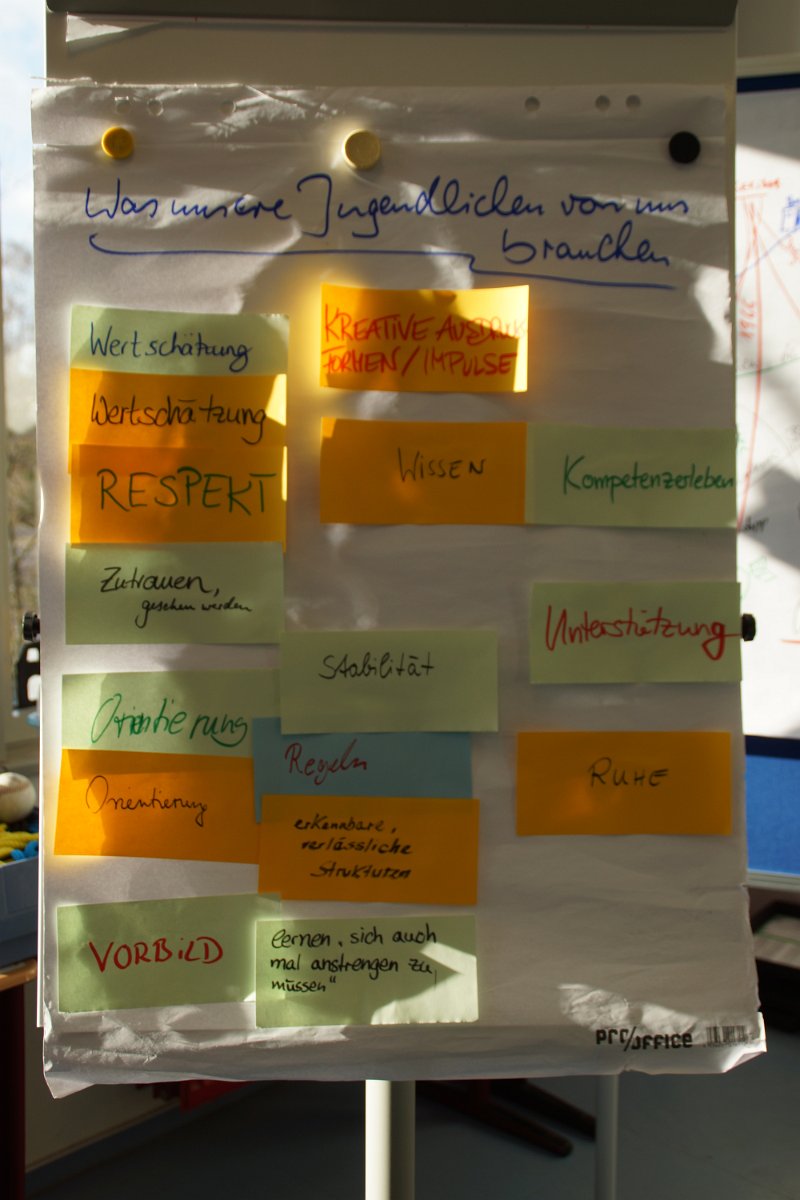 Was unsere Jugendlichen von uns
brauchen
Wertschätzung
Wertschätzung
RESPEKT
Zutrauen,
gesehen werden
Orientierung
Orientierung
VORBILD
KREATIVE AUSDRUCKS
FORMEN / IMPULSE
WISSEN
Kompetenzerleben
Unterstützung
Stabilität
Regeln
erkennbare,
verlässliche
Strukturen
RUHE
lernen „sich auch
mal anstrengen zu
müssen"
pro/office